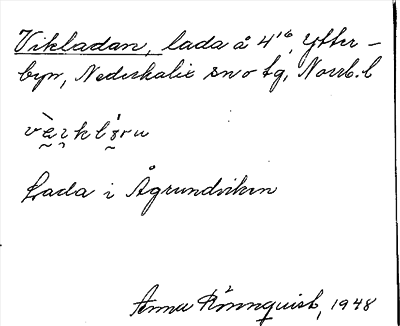 Vikladan, lada å 4¹⁶, Ytter-
byn, Nederkalix sn o tg, Norrb. l
Lada i Ågrundviken
Anna Rönnquist, 1948